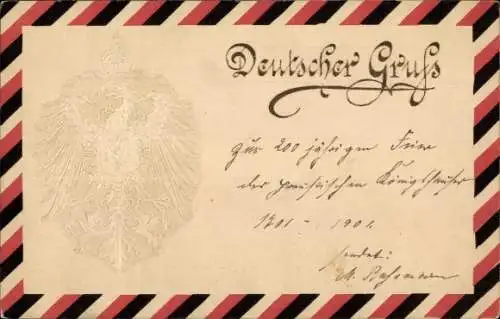 Deutscher Gruss
Zur 200 jährigen Feier
der preussischen Königshauses
1701 - 1901.
sendet: